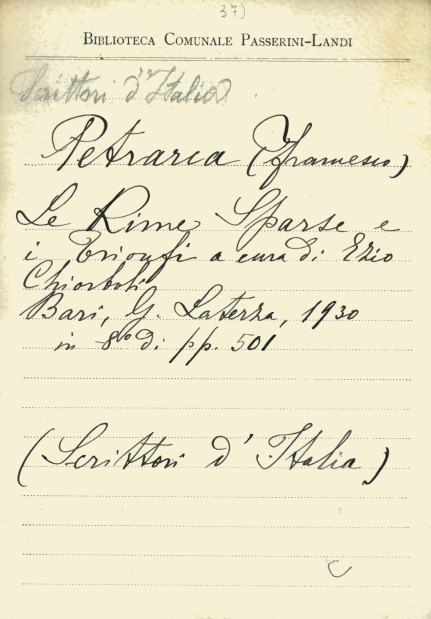 37)
BIBLIOTECA COMUNALE PASSERINI-LANDI
Scrittori d'Italia
Petrarca (Francesco)
Le Rime Sparse e
i Trionfi a cura di Ezio
Chiorboli
Bari, G. Laterza, 1930
in 8º di pp. 501
(Scrittori d'Italia)